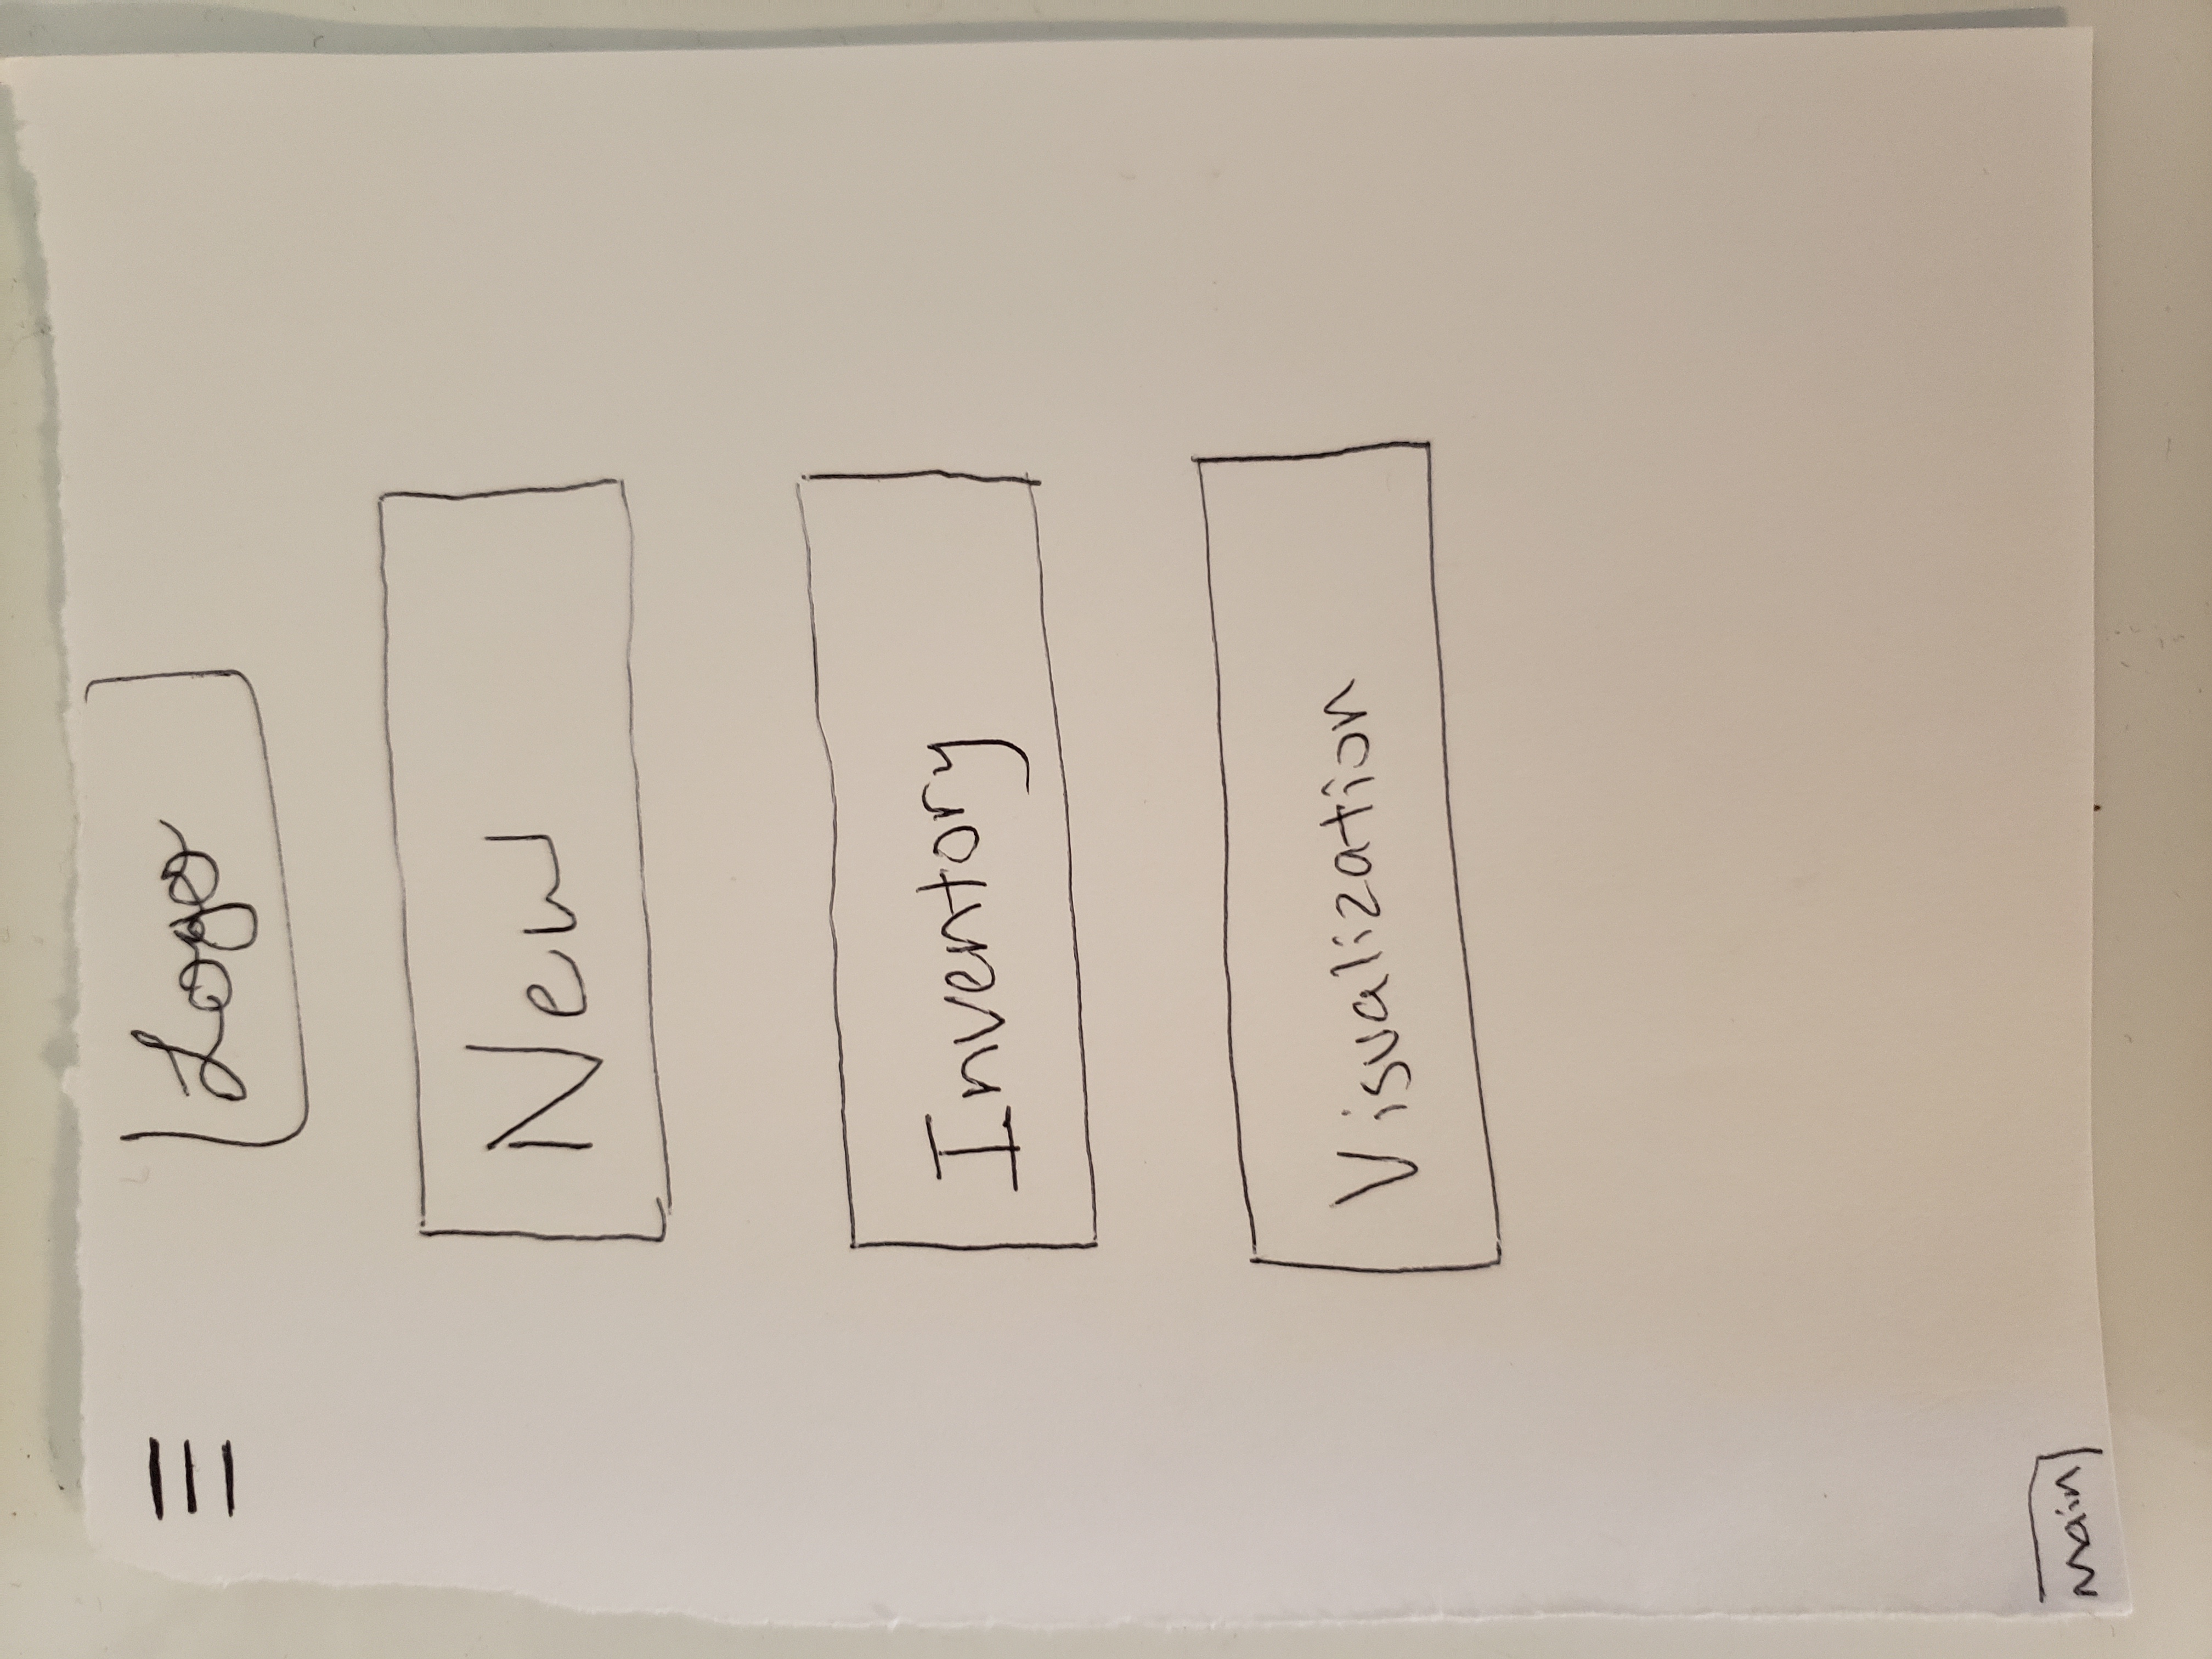 Logo
New
Inventory
Visualization
Main